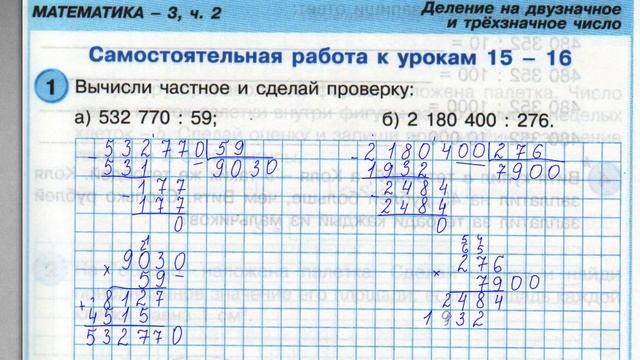 МАТЕМАТИКА – 3, ч. 2
Деление на двузначное
и трёхзначное число
Самостоятельная работа к урокам 15 – 16
1 Вычисли частное и сделай проверку:
а) 532 770 : 59;
б) 2 180 400 : 276.
532770 59
- 531 9030
177
- 177
0
2
9030
× 59
8127
+ 4515
532770
2180400 276
- 1932 7900
2484
- 2484
0
54
65
276
× 7900
2484
1932